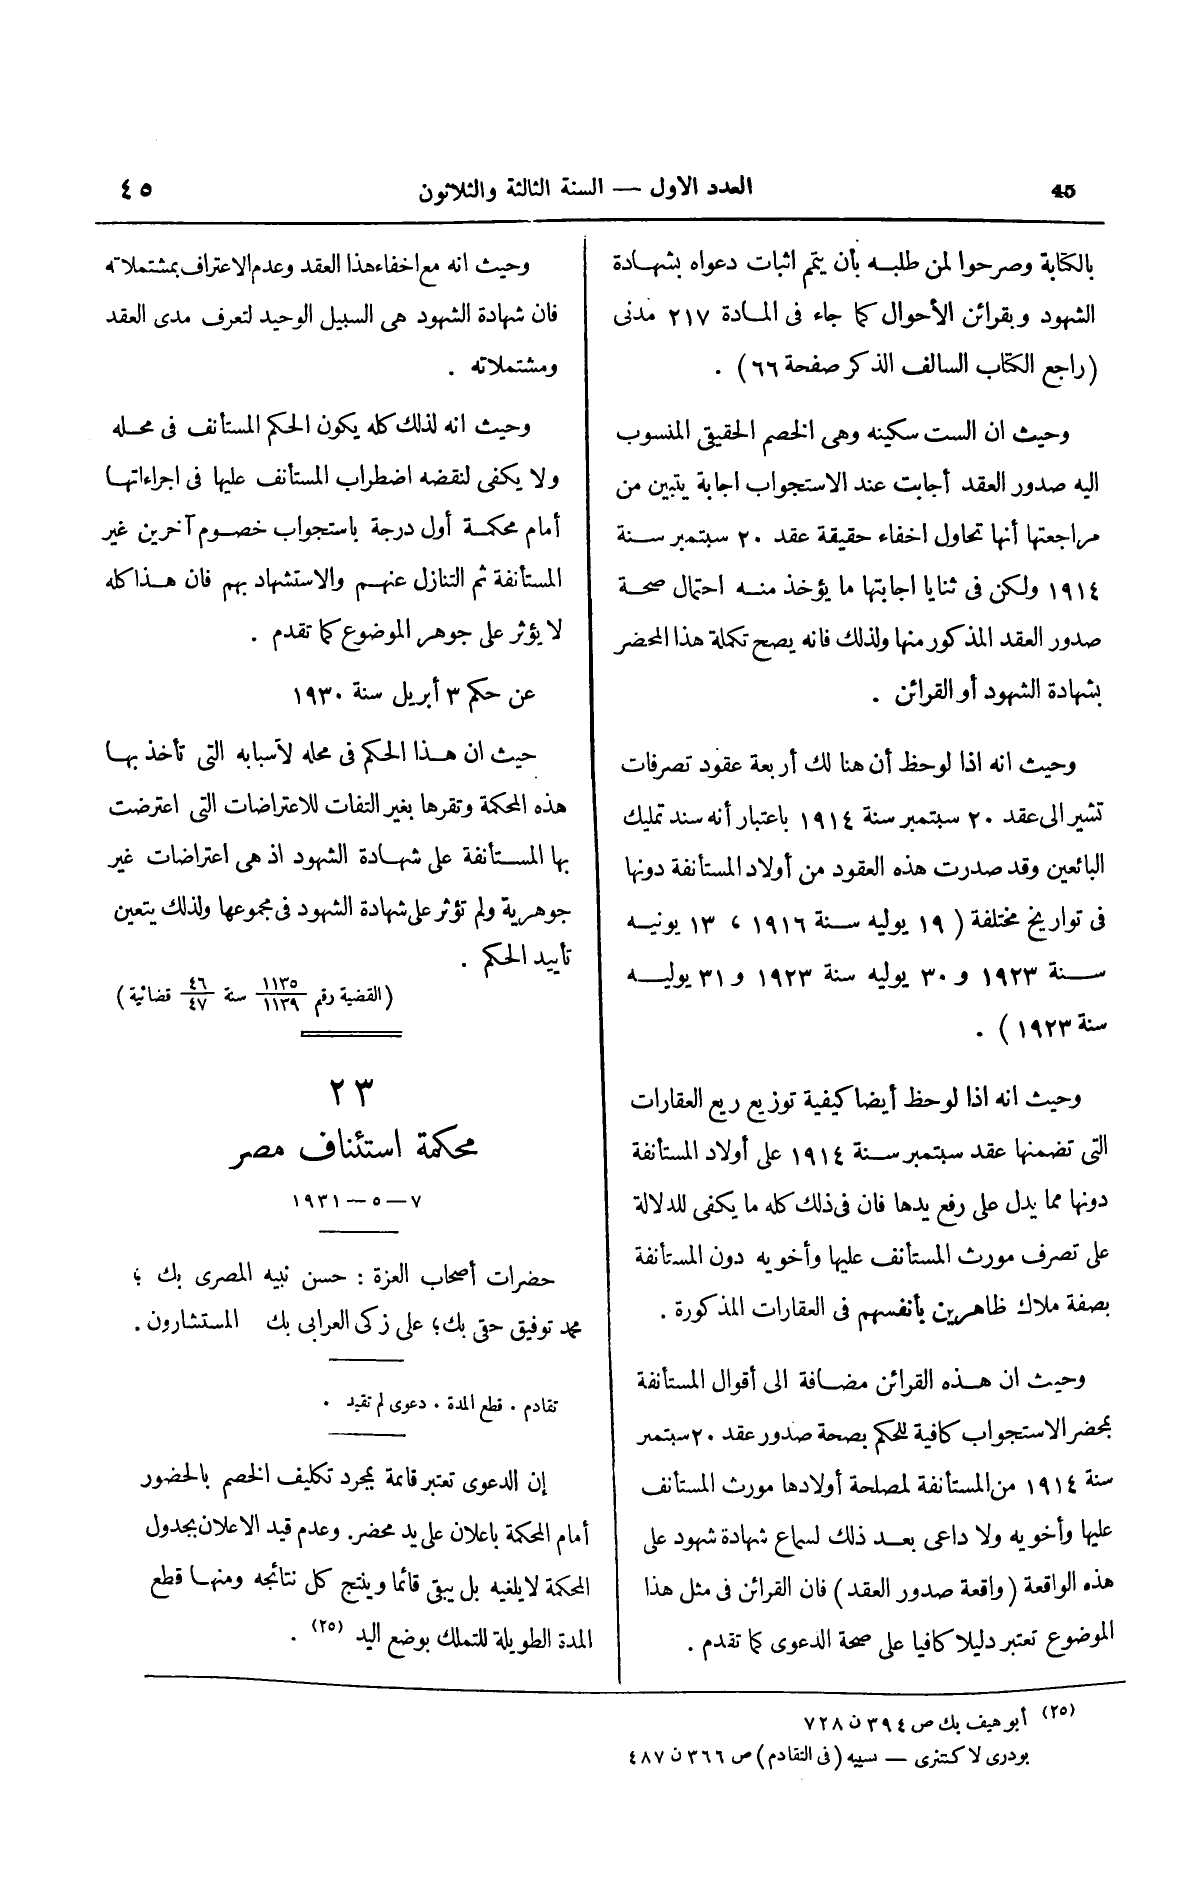 45
العدد الاول — السنة الثالثة والثلاثون
٤٥
بالكتابة وصرحوا لمن طلبه بأن يتمم اثبات دعواه بشهادة
الشهود وبقرائن الأحوال كما جاء فى المادة ٢١٧ مدنى
(راجع الكتاب السالف الذكر صفحة ٦٦) .
وحيث ان الست سكينه وهى الخصم الحقيقى المنسوب
اليه صدور العقد أجابت عند الاستجواب اجابة يتبين من
مراجعتها أنها تحاول اخفاء حقيقة عقد ٢٠ سبتمبر سنة
١٩١٤ ولكن فى ثنايا اجابتها ما يؤخذ منه احتمال صحة
صدور العقد المذكور منها ولذلك فانه يصح تكملة هذا المحضر
بشهادة الشهود أو القرائن .
وحيث انه اذا لوحظ أن هنالك أربعة عقود تصرفات
تشير الى عقد ٢٠ سبتمبر سنة ١٩١٤ باعتبار أنه سند تمليك
البائعين وقد صدرت هذه العقود من أولاد المستأنفة دونها
فى تواريخ مختلفة ( ١٩ يوليه سنة ١٩١٦ ، ١٣ يونيه
سنة ١٩٢٣ و ٣٠ يوليه سنة ١٩٢٣ و ٣١ يوليه
سنة ١٩٢٣ ) .
وحيث انه اذا لوحظ أيضا كيفية توزيع ريع العقارات
التى تضمنها عقد سبتمبر سنة ١٩١٤ على أولاد المستأنفة
دونها مما يدل على رفع يدها فان فى ذلك كله ما يكفى للدلالة
على تصرف مورث المستأنف عليها وأخويه دون المستأنفة
بصفة ملاك ظاهرين بأنفسهم فى العقارات المذكورة .
وحيث ان هذه القرائن مضافة الى أقوال المستأنفة
بمحضر الاستجواب كافية للحكم بصحة صدور عقد ٢٠ سبتمبر
سنة ١٩١٤ من المستأنفة لمصلحة أولادها مورث المستأنف
عليها وأخويه ولا داعى بعد ذلك لسماع شهادة شهود على
هذه الواقعة ( واقعة صدور العقد ) فان القرائن فى مثل هذا
الموضوع تعتبر دليلا كافيا على صحة الدعوى كما تقدم .
وحيث انه مع اخفاء هذا العقد وعدم الاعتراف بمشتملاته
فان شهادة الشهود هى السبيل الوحيد لتعرف مدى العقد
ومشتملاته .
وحيث انه لذلك كله يكون الحكم المستأنف فى محله
ولا يكفى لنقضه اضطراب المستأنف عليها فى اجراءاتها
أمام محكمة أول درجة باستجواب خصوم آخرين غير
المستأنفة ثم التنازل عنهم والاستشهاد بهم فان هذا كله
لا يؤثر على جوهر الموضوع كما تقدم .
عن حكم ٣ أبريل سنة ١٩٣٠
حيث ان هذا الحكم فى محله لأسبابه التى تأخذ بها
هذه المحكمة وتقرها بغير التفات للاعتراضات التى اعترضت
بها المستأنفة على شهادة الشهود اذ هى اعتراضات غير
جوهرية ولم تؤثر على شهادة الشهود فى مجموعها ولذلك يتعين
تأييد الحكم .
(القضية رقم ١١٣٥/١١٣٩ سنة ٤٦/٤٧ قضائية)
٢٣
محكمة استئناف مصر
٧ — ٥ — ١٩٣١
حضرات أصحاب العزة : حسن نبيه المصرى بك ؛
محمد توفيق حقى بك؛ على زكى العرابى بك المستشارون .
تقادم . قطع المدة . دعوى لم تقيد .
إن الدعوى تعتبر قائمة بمجرد تكليف الخصم بالحضور
أمام المحكمة باعلان على يد محضر. وعدم قيد الاعلان بجدول
المحكمة لا يلغيه بل يبقى قائما وينتج كل نتائجه ومنها قطع
المدة الطويلة للتملك بوضع اليد (٢٥) .
(٢٥) أبو هيف بك ص ٣٩٤ ن ٧٢٨
بودرى لاكنترى — سييه (فى التقادم) ص ٣٦٦ ن ٤٨٧